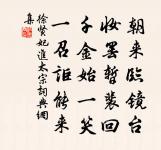 朝来临镜台
妆罢暂裴回
千金始一笑
一召讵能来
徐贤妃进太宗词典网
集